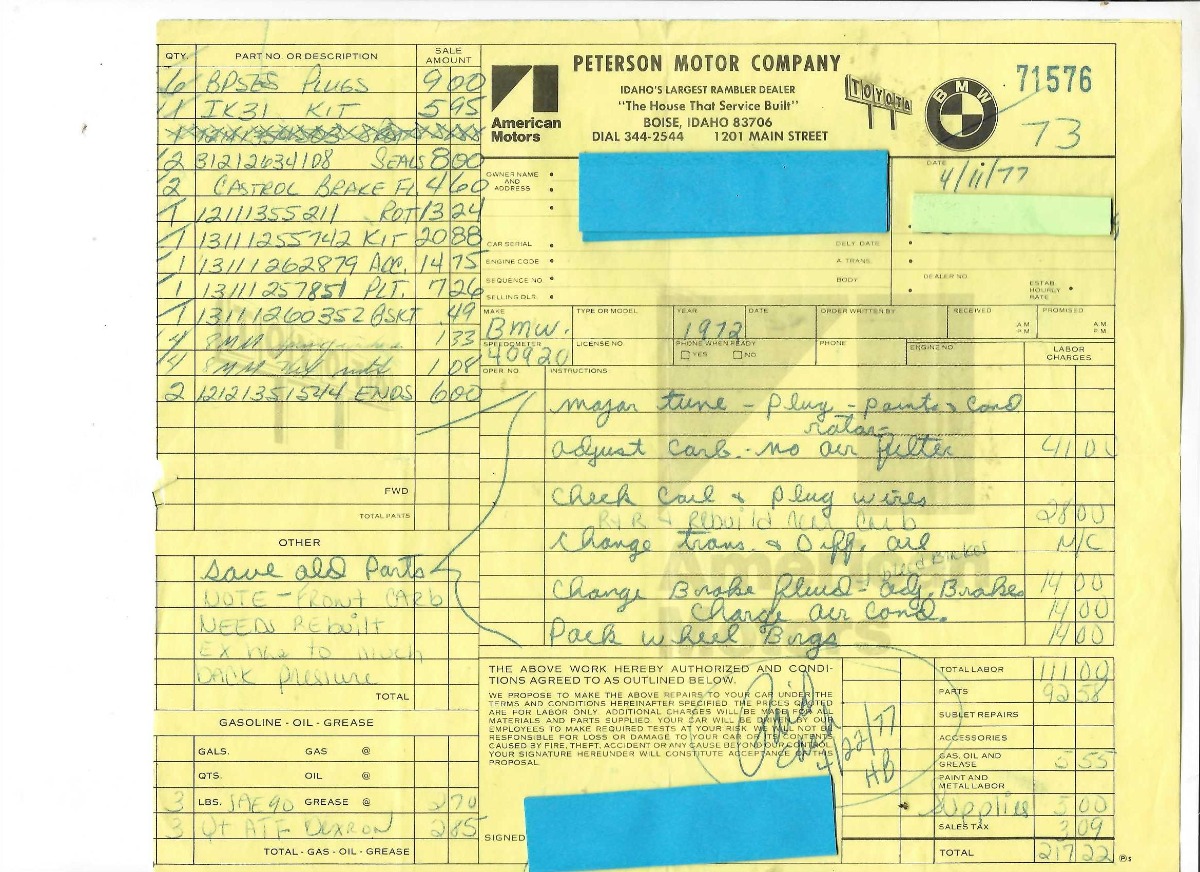 QTY. PART NO. OR DESCRIPTION SALE AMOUNT
6 BP5ES PLUGS 9 00
1 IK31 KIT 5 95
2 31212634108 SEALS 8 00
2 CASTROL BRAKE FL 4 60
1 12111355211 ROT 13 24
1 13111255742 KIT 20 88
1 13111262879 ACC. 14 75
1 13111257851 PLT. 7 26
1 13111260352 GSKT .49
4 8MM 1 33
4 8MM nuts 1 08
2 12121351544 ENDS 6 00
FWD
TOTAL PARTS
OTHER
Save old Parts
NOTE - FRONT CARB
NEEDS REbuilt
EX has to much
BACK pressure
TOTAL
GASOLINE - OIL - GREASE
GALS. GAS @
QTS. OIL @
3 LBS. SAE 90 GREASE @ 2 70
3 Qt ATF DEXRON 2 85
TOTAL - GAS - OIL - GREASE
American Motors
PETERSON MOTOR COMPANY
IDAHO'S LARGEST RAMBLER DEALER
"The House That Service Built"
BOISE, IDAHO 83706
DIAL 344-2544 1201 MAIN STREET
TOYOTA
BMW
71576
73
OWNER NAME AND ADDRESS
DATE
4/11/77
CAR SERIAL DELY. DATE
ENGINE CODE A. TRANS.
SEQUENCE NO BODY DEALER NO
SELLING DLR. ESTAB. HOURLY RATE
MAKE TYPE OR MODEL YEAR DATE ORDER WRITTEN BY RECEIVED A.M. P.M. PROMISED A.M. P.M.
Bmw. 1972
SPEEDOMETER LICENSE NO. PHONE WHEN READY YES NO PHONE ENGINE NO. LABOR CHARGES
40920
OPER NO. INSTRUCTIONS
Major tune - plug - points & cond
rotor
adjust carb. - no air filter 41 00
Check Coil & plug wires
R & R & REbuild Rear Carb 28 00
Change trans. & Diff. oil N/C
Change Brake fluid - adj. Brakes 14 00
Charge air cond. 14 00
Pack wheel Brgs 14 00
THE ABOVE WORK HEREBY AUTHORIZED AND CONDITIONS AGREED TO AS OUTLINED BELOW.
WE PROPOSE TO MAKE THE ABOVE REPAIRS TO YOUR CAR UNDER THE
TERMS AND CONDITIONS HEREINAFTER SPECIFIED. THE PRICES QUOTED
ARE FOR LABOR ONLY. ADDITIONAL CHARGES WILL BE MADE FOR ALL
MATERIALS AND PARTS SUPPLIED. YOUR CAR WILL BE DRIVEN BY OUR
EMPLOYEES TO MAKE REQUIRED TESTS AT YOUR RISK. WILL NOT BE
RESPONSIBLE FOR LOSS OR DAMAGE TO YOUR CAR OR ITS CONT
CAUSED BY FIRE, THEFT, ACCIDENT OR ANY CAUSE BEYOND OUR CONTROL.
YOUR SIGNATURE HEREUNDER WILL CONSTITUTE ACCEPTANCE OF THIS
PROPOSAL.
Paid
4/22/77
HB
SIGNED
TOTAL LABOR 111 00
PARTS 92 58
SUBLET REPAIRS
ACCESSORIES
GAS, OIL AND GREASE 5 55
PAINT AND METAL LABOR
Supplies 5 00
SALES TAX 3 09
TOTAL 217 22